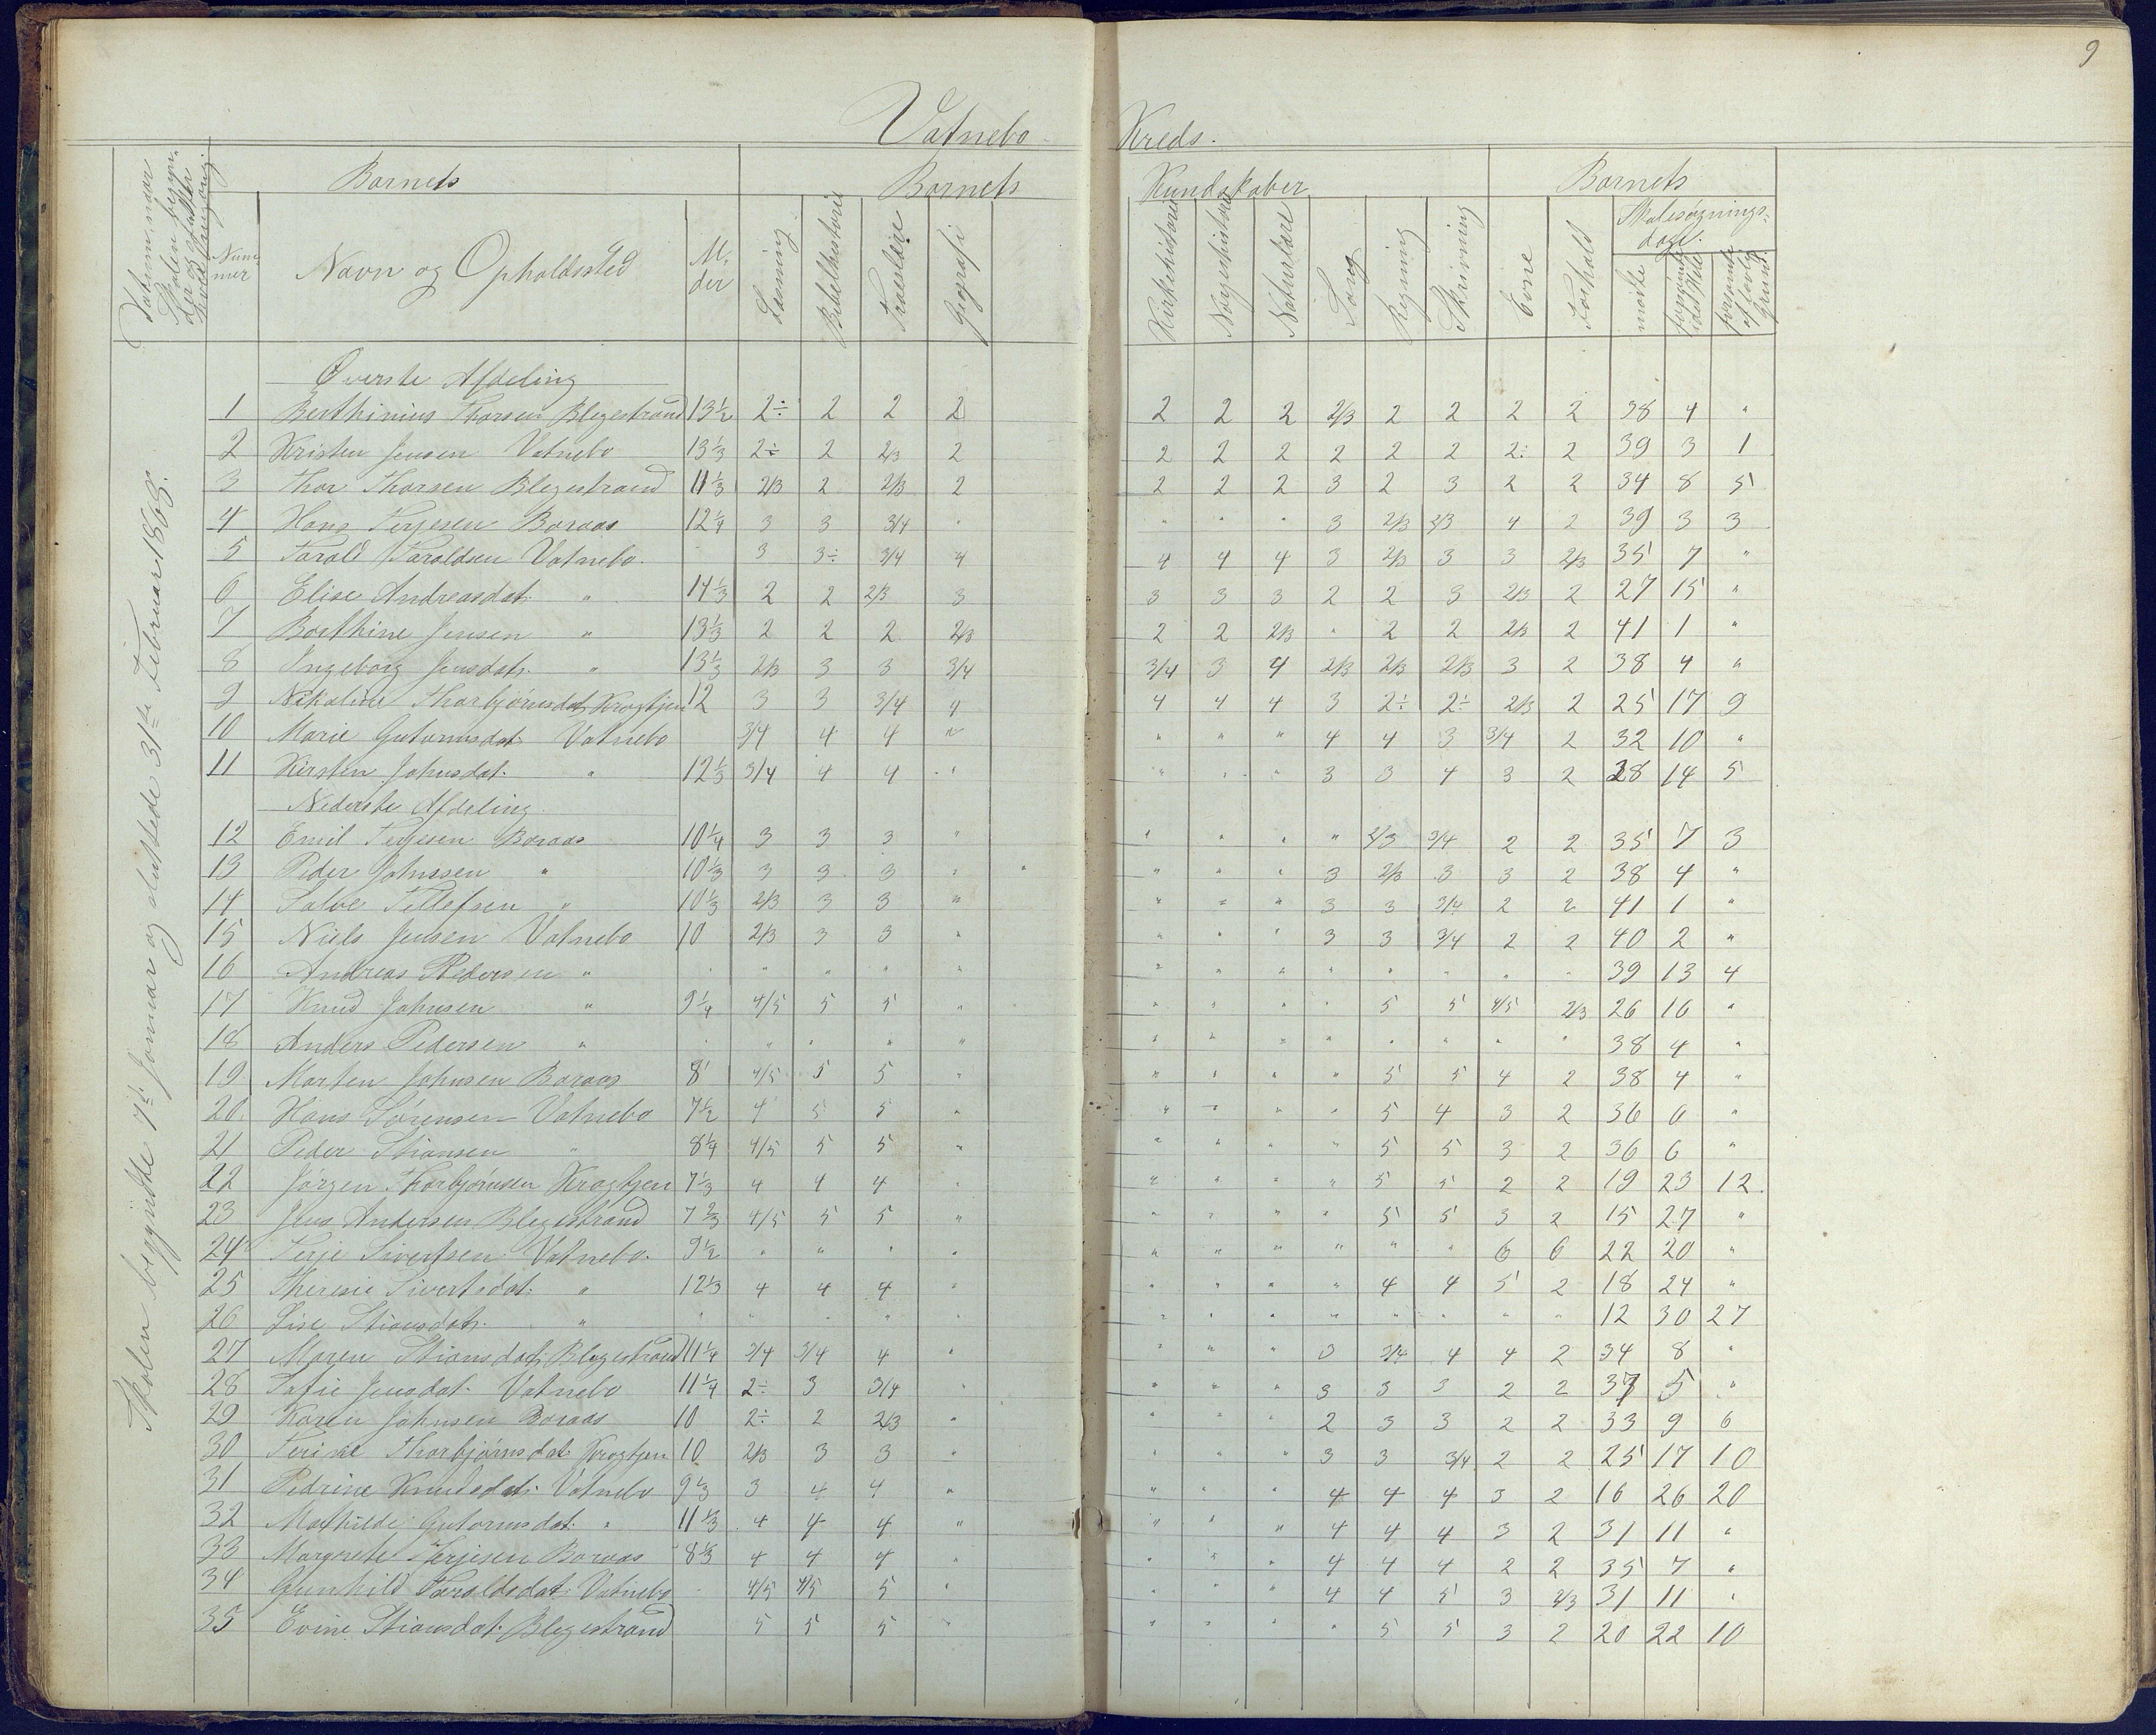 9
Vatnebo Kreds.
Datum, naar Skolen begyn-
der og slutter
hver Gang
Barnets Barnets Kundskaber Barnets
Num-
mer Navn og Opholdssted Al-
der Læsning Bibelhistorie Troeslære Geografi Kirkehistorie Norgeshistorie Naturlære Sang Regning Skrivning Evne Forhold Skolesøgnings-
dage.
mødte forsømte i det Hele forsømte af lovlig Grund
Skolen begyndte 7de Januar og sluttede 31te Februar 1868.
Øverste Afdeling
1 Berthinius Thorsen Blegestrand 13½ 2÷ 2 2 2 2 2 2 2/3 2 2 2 2 38 4 "
2 Kristen Jensen Vatnebo 13⅓ 2÷ 2 2/3 2 2 2 2 2 2 2 2÷ 2 39 3 1
3 Thor Thorsen Blegestrand 11⅓ 2/3 2 2/3 2 2 2 2 3 2 3 2 2 34 8 5
4 Hans Terjesen Boraas 12¼ 3 3 3/4 " " " " 3 2/3 2/3 4 2 39 3 3
5 Tarald Taraldsen Vatnebo. 3 3÷ 3/4 4 4 4 4 3 2/3 3 3 2/3 35 7 "
6 Elise Andreasdat. " 14⅓ 2 2 2/3 3 3 3 3 2 2 3 2/3 2 27 15 "
7 Berthine Jensen " 13⅓ 2 2 2 2/3 2 2 2/3 " 2 2 2/3 2 41 1 "
8 Ingeborg Jensdat. " 13⅓ 2/3 3 3 3/4 3/4 3 4 2/3 2/3 2/3 3 2 38 4 "
9 Nikoline Thorbjørnsdat. Krogtjen 12 3 3 3/4 4 4 4 4 3 2÷ 2÷ 2/3 2 25 17 9
10 Marie Gutormsdat. Vatnebo 3/4 4 4 " " " " 4 4 3 3/4 2 32 10 "
11 Kirsten Johnsdat. " 12⅓ 3/4 4 4 " " " " 3 3 4 3 2 28 14 5
Nederste Afdeling
12 Emil Terjesen Boraas 10¼ 3 3 3 " " " " " 2/3 3/4 2 2 35 7 3
13 Peder Johnsen " 10⅓ 3 3 3 " " " " " 3 2/3 3 3 2 38 4 "
14 Salve Tellefsen " 10⅓ 2/3 3 3 " " " " 3 3 3/4 2 2 41 1 "
15 Niels Jensen Vatnebo 10 2/3 3 3 " " " " 3 3 3/4 2 2 40 2 "
16 Andreas Pedersen " " " " " " " " " " " " " " 39 13 4
17 Knud Johnsen " 9¼ 4/5 5 5 " " " " " 5 5 4/5 2/3 26 16 "
18 Anders Pedersen " " " " " " " " " " " " " " 38 4 "
19 Morten Johnsen Boraas 8 4/5 5 5 " " " " " 5 5 4 2 38 4 "
20 Hans Sørensen Vatnebo 7½ 4 5 5 " " " " " 5 4 3 2 36 6 "
21 Peder Stiansen " 8¼ 4/5 5 5 " " " " " 5 5 3 2 36 6 "
22 Jørgen Thorbjørnsen Krogtjen 7⅓ 4 4 4 " " " " " 5 5 2 2 19 23 12
23 Jens Andersen Blegestrand 7⅔ 4/5 5 5 " " " " " 5 5 3 2 15 27 "
24 Terje Sivertsen Vatnebo. 9½ " " " " " " " " " " 6 6 22 20 "
25 Theresie Sivertsdat. " 12⅓ 4 4 4 " " " " " 4 4 5 2 18 24 "
26 Lise Stiansdat. " " " " " " " " " " " " " " 12 30 27
27 Maren Stiansdat. Blegestrand 11¼ 3/4 3/4 4 " " " " 3 3/4 4 4 2 34 8 "
28 Sofie Jensdat. Vatnebo 11¼ 2÷ 3 3/4 " " " " 3 3 3 2 2 37 5 "
29 Karen Johnsen Boraas 10 2÷ 2 2/3 " " " " 2 3 3 2 2 33 9 6
30 Thorbjørnsdat. Krogtjen 10 2/3 3 3 " " " " 3 3 3/4 2 2 25 17 10
31 Pedrine Knudsdat. Vatnebo 9⅓ 3 4 4 " " " " 4 4 4 3 2 16 26 20
32 Mathilde Gutormsdat. " 11⅓ 4 4 4 " " " " 4 4 4 3 2 31 11 "
33 Margrete Terjesen Boraas 8⅓ 4 4 4 " " " " 4 4 4 2 2 35 7 "
34 Gunhild Taraldsdat. Vatnebo 4/5 4/5 5 " " " " 4 4 5 3 2/3 31 11 "
35 Evine Stiansdat. Blegestrand 5 5 5 " " " " " 5 5 3 2 20 22 10